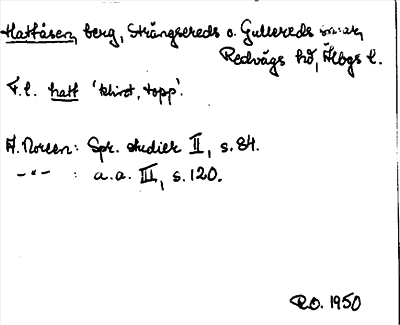 Hattåsen, berg, Strängsereds o. Gullereds snar,
Redvägs hd, Älbgs l.
F.l. hatt 'klint, topp'.
A. Noreen: Spr. studier II, s. 84.
–"– : a.a. III, s. 120.
R.O. 1950